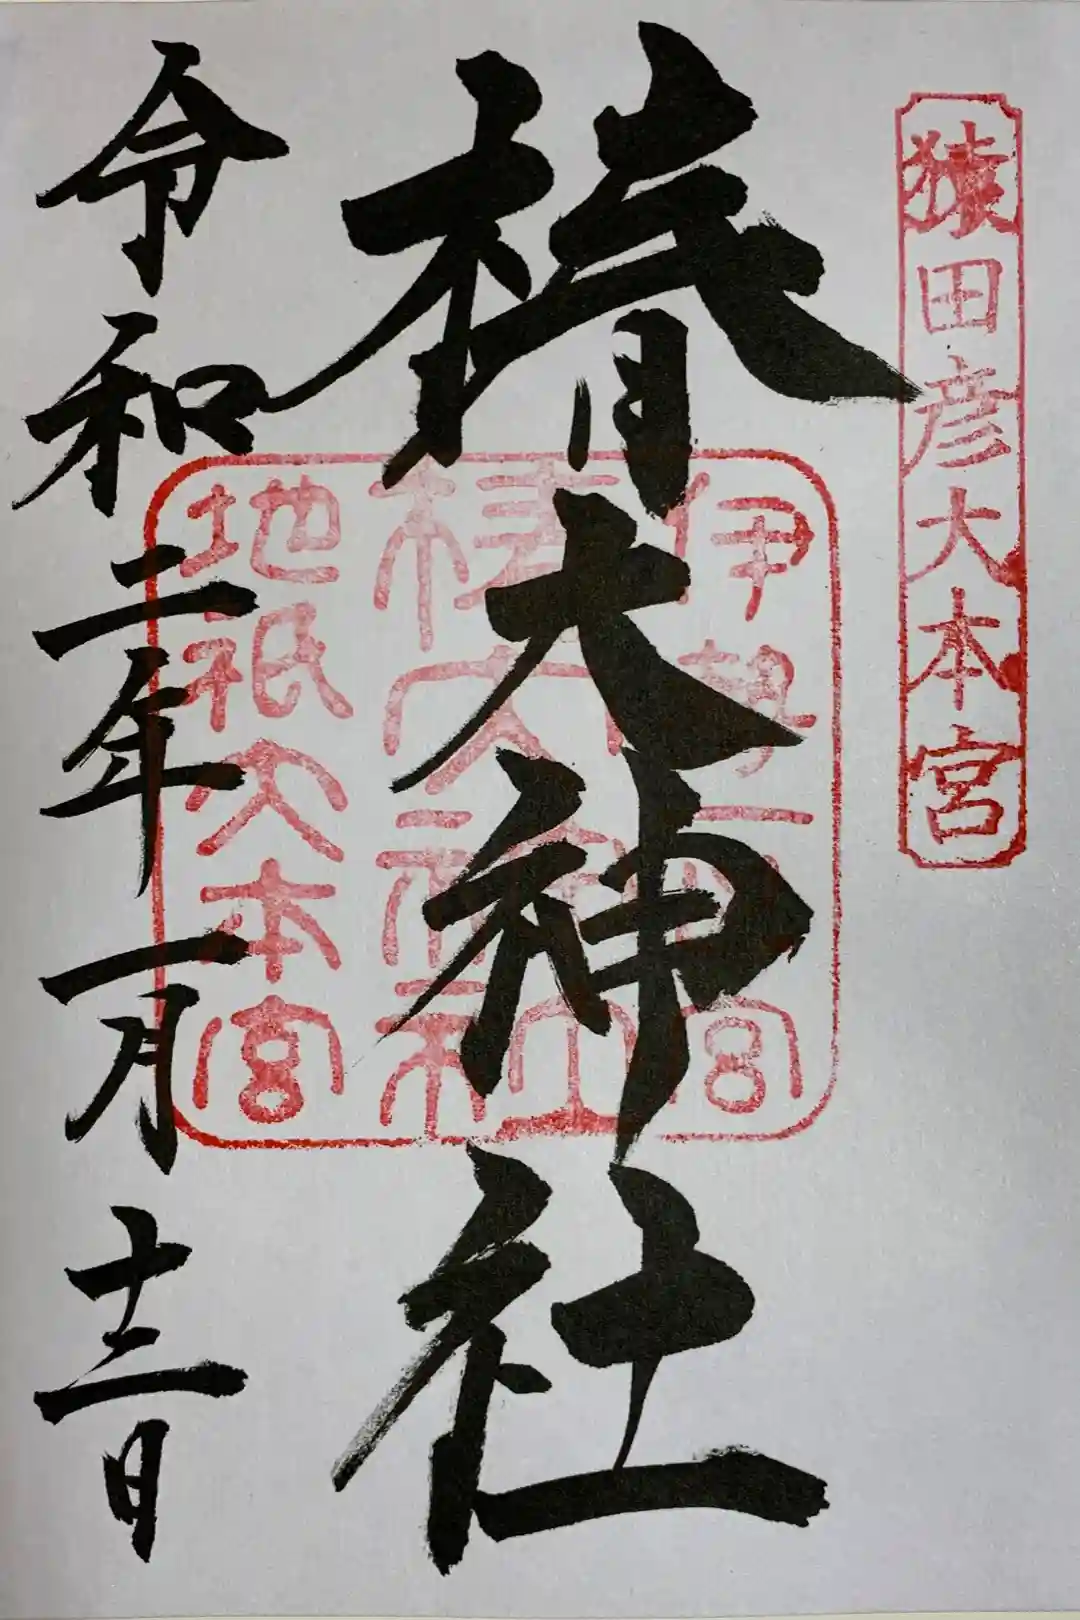 猿田彦大本宮
椿大神社
令和二年一月十三日
伊勢一之宮
椿大神社
地祇大本宮